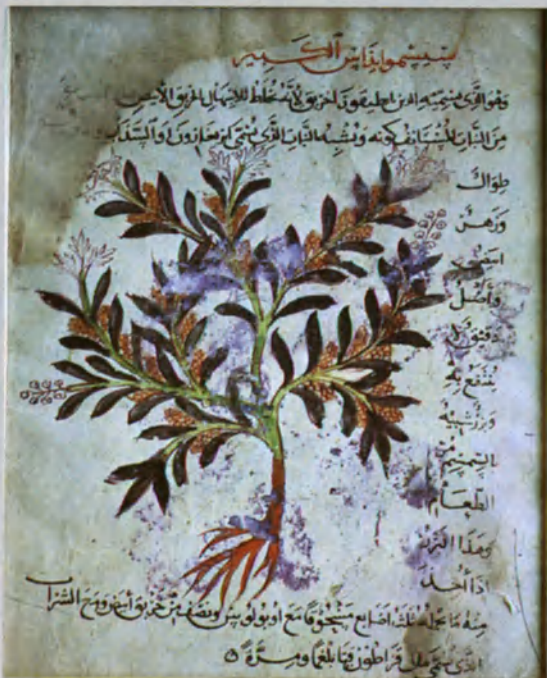 سيسمويداس الكبير
وهو الذي يسميه الذين انطيقون اخريق لانه يخلط للاسهال الخربق الابيض
من النبات المستانف كونه ويشبه النبات الذي يسمى ايريغارون او السذاب
طوال
وزهر
ابيض
واصل
دقيق لا
ينتفع به
وبزر شبيه
بالسمسم
الطعام
وهذا البزر
اذا اخذ
منه ما يحمله ثلث اصابع مسحوقا مع اوبولوس ونصف من خربق ابيض ومع الشراب
الذي يسمى مالقراطون قيا بلغما ومرة